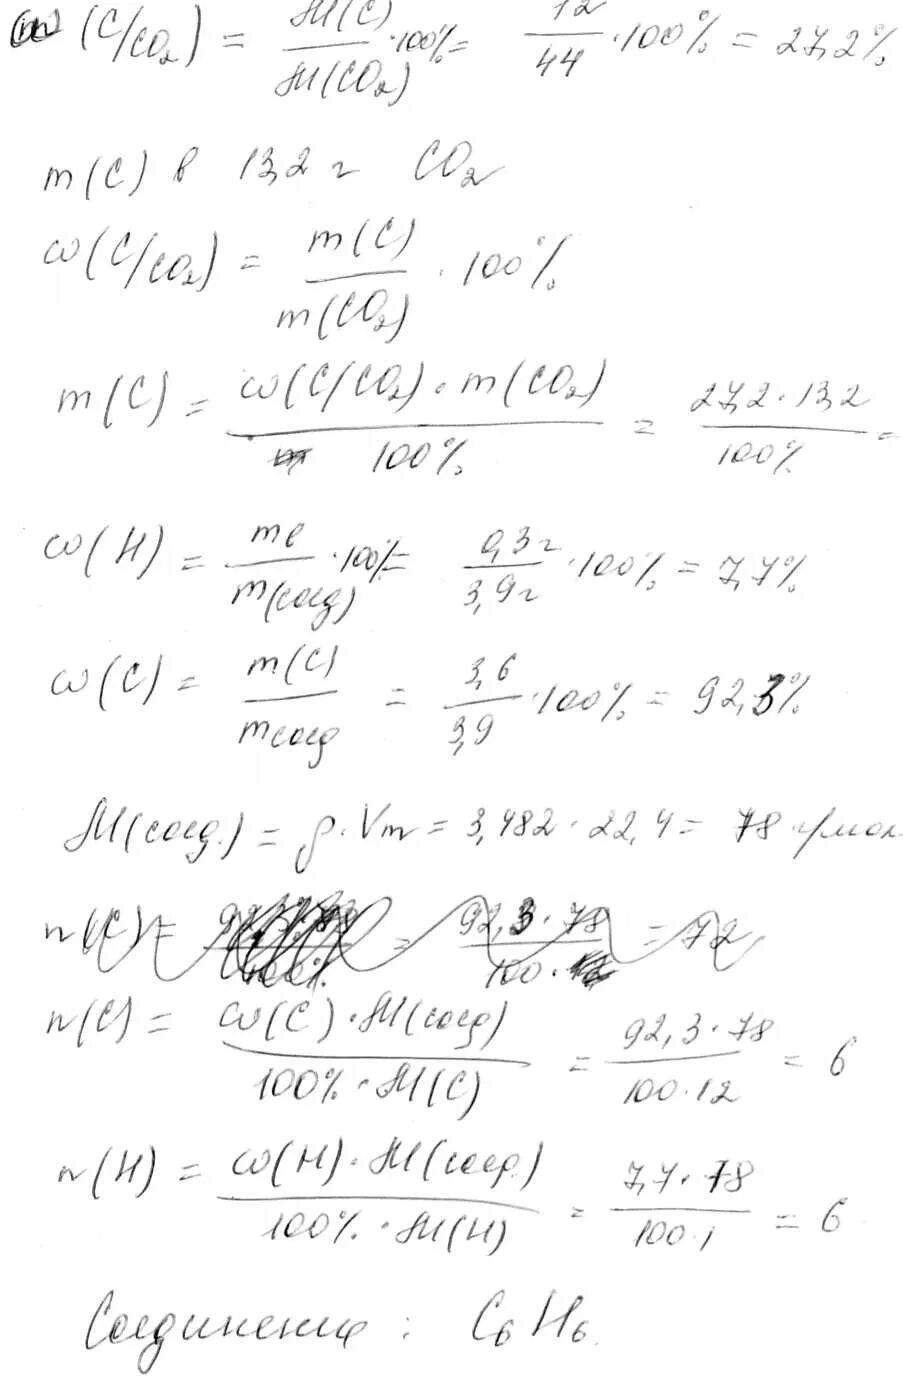 ω (C/CO₂) = M(C) / M(CO₂) · 100% = 12 / 44 · 100% = 27,2%
m(C) в 13,2 г CO₂
ω(C/CO₂) = m(C) / m(CO₂) · 100%
m(C) = ω(C/CO₂) · m(CO₂) / 100% = 27,2 · 13,2 / 100% =
ω(H) = mв / m(соед) · 100% = 0,3г / 3,9г · 100% = 7,7%
ω(C) = m(C) / mсоед = 3,6 / 3,9 · 100% = 92,3%
M(соед.) = ρ · Vm = 3,482 · 22,4 = 78 г/мол
n(C) = = 92,3 · 78 / 100 · = 72
n(C) = ω(C) · M(соед) / 100% · M(C) = 92,3 · 78 / 100 · 12 = 6
n(H) = ω(H) · M(соед.) / 100% · M(H) = 7,7 · 78 / 100 · 1 = 6
Соединение : C₆H₆.